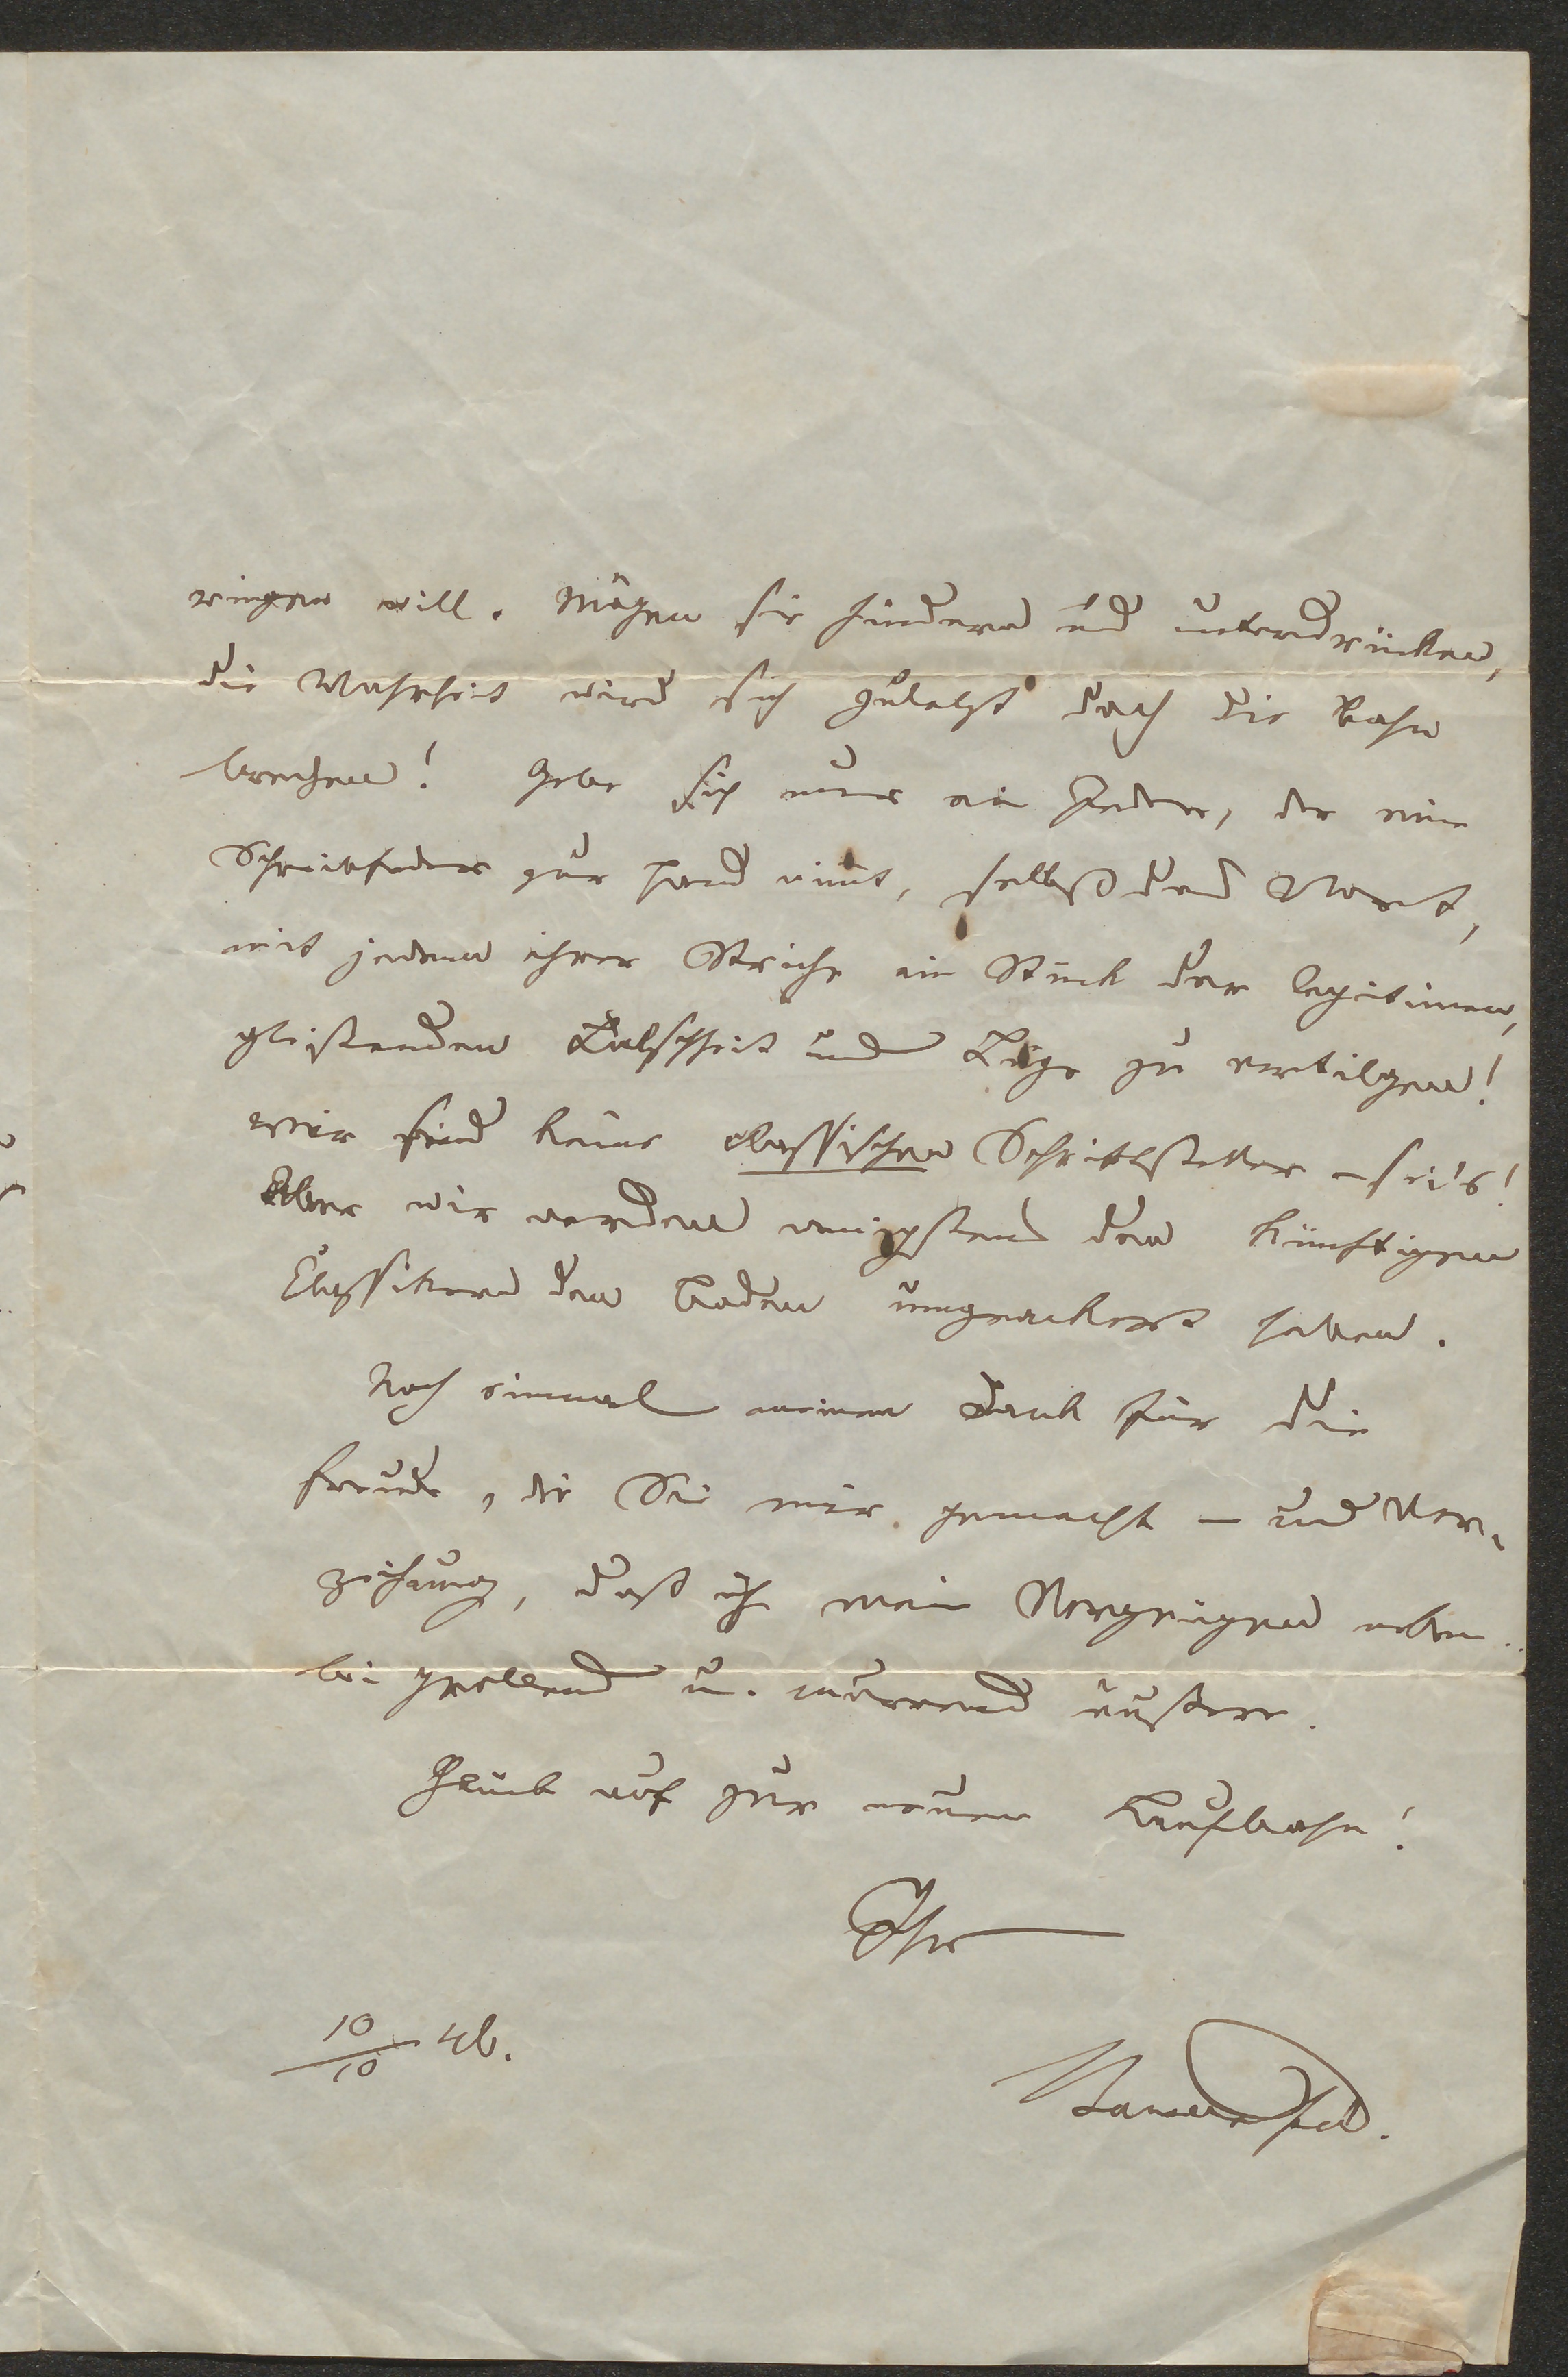 ringen will. Mögen sie hindern und unterdrücken,
die Wahrheit wird sich zuletzt doch die Bahn
brechen! Gebe sich nur ein Jeder, der eine
Schreibfeder zur Hand nimt, selbst das Wort,
mit jedem ihrer Striche ein Stück der legitimen,
gleißenden Falschheit und Lüge zu vertilgen!
Wir sind keine classischen Schriftsteller – sei's!
Aber wir werden wenigstens den künftigen
Classikern den Boden umgeackert haben.
Noch einmal meinen Dank für die
Freude, die Sie mir gemacht – und Ver-
zeihung, daß ich mein Vergnügen neben-
bei grollend u. murrend äußere.
Glück auf zur neuen Laufbahn!
Ihr
10/10 46.
Bauernfeld.